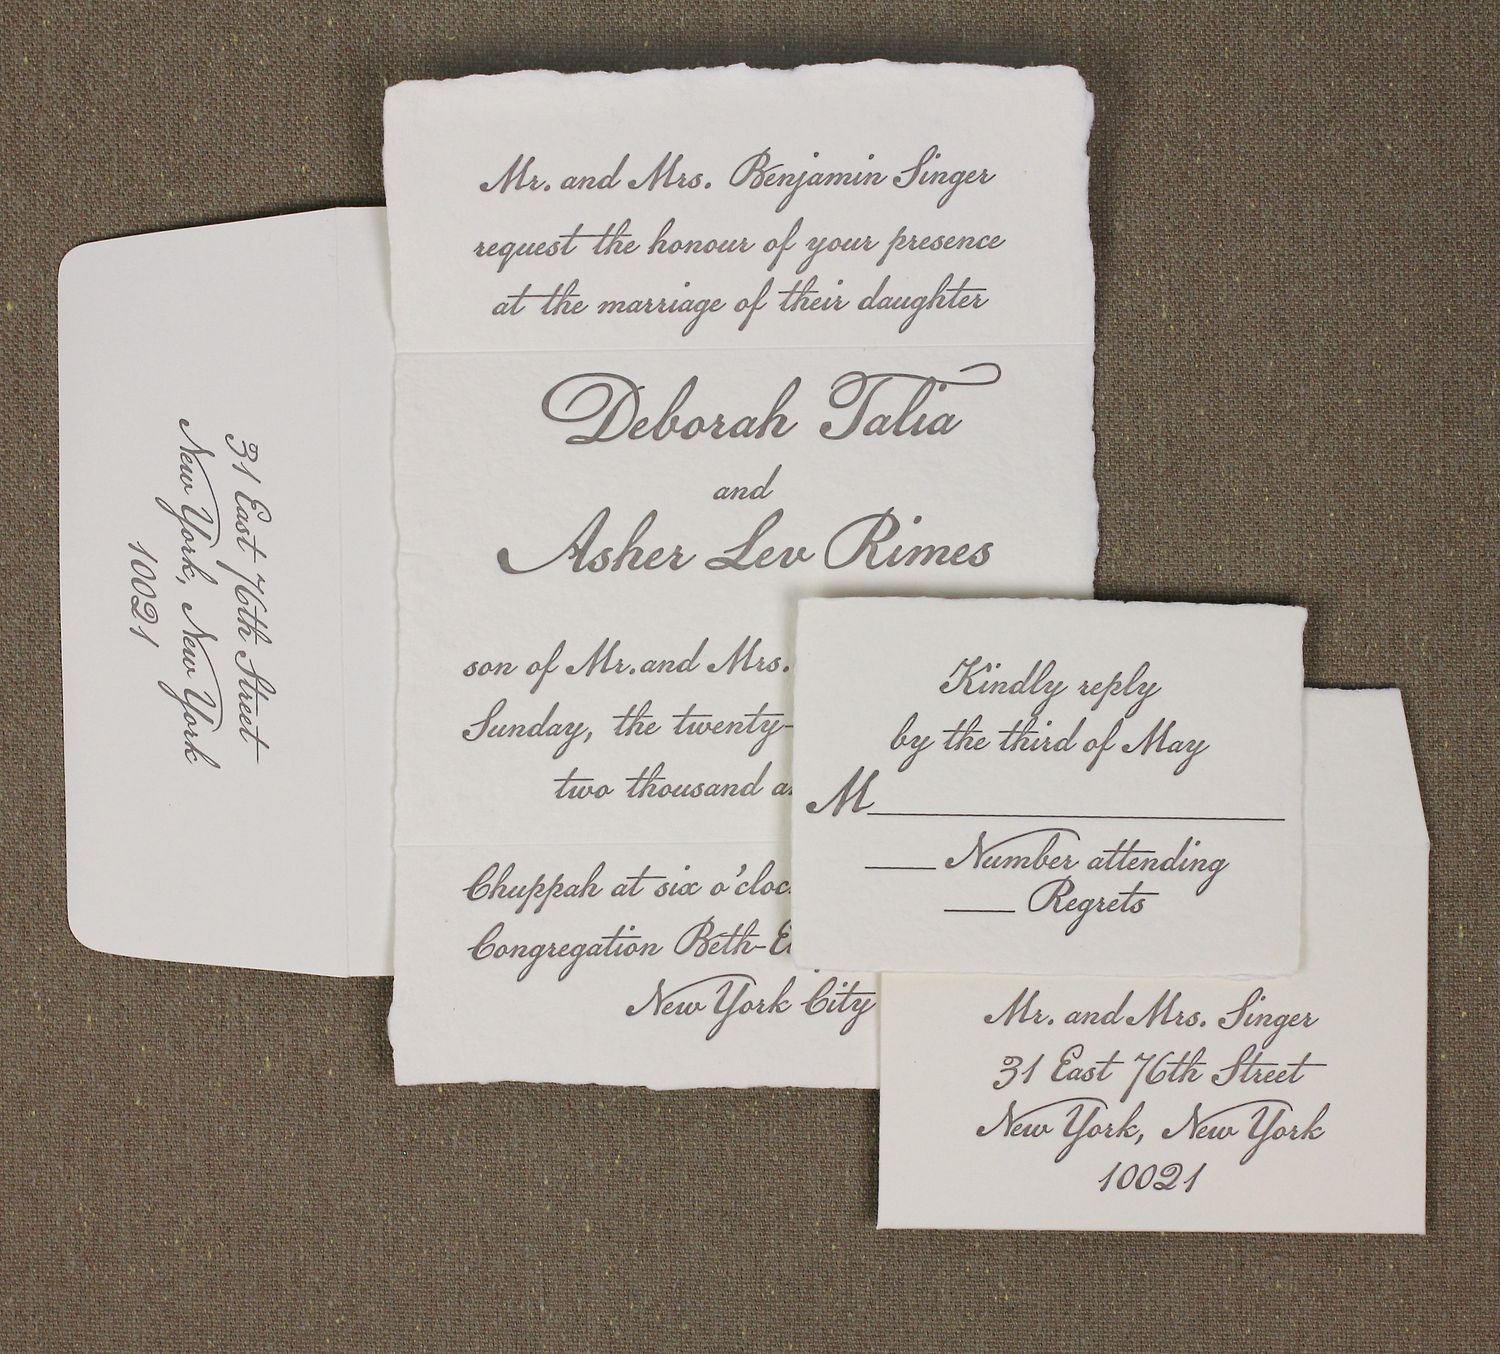 Mr. and Mrs. Benjamin Singer
request the honour of your presence
at the marriage of their daughter
Deborah Talia
and
Asher Lev Rimes
son of Mr.and Mrs.
Sunday, the twenty-
two thousand
Chuppah at six
Congregation Beth-
New York City
31 East 76th Street
New York, New York
10021
Kindly reply
by the third of May
M
Number attending
Regrets
Mr. and Mrs. Singer
31 East 76th Street
New York, New York
10021